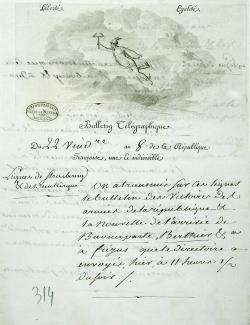 Liberté Egalité
Bulletin Télégraphique
Du 22 Vend.re an 8 de la République
Française, une et indivisible
Lignes de Strasbourg
& de Dunkerque
on a transmis sur ces lignes
le bulletin des Victoires des
armées de la république et
la nouvelle de l'arrivée de
Buonaparte, Berthier &
à fréjus que le directoire a
envoyés, hier à 11 heures 1/2
du soir /.
314